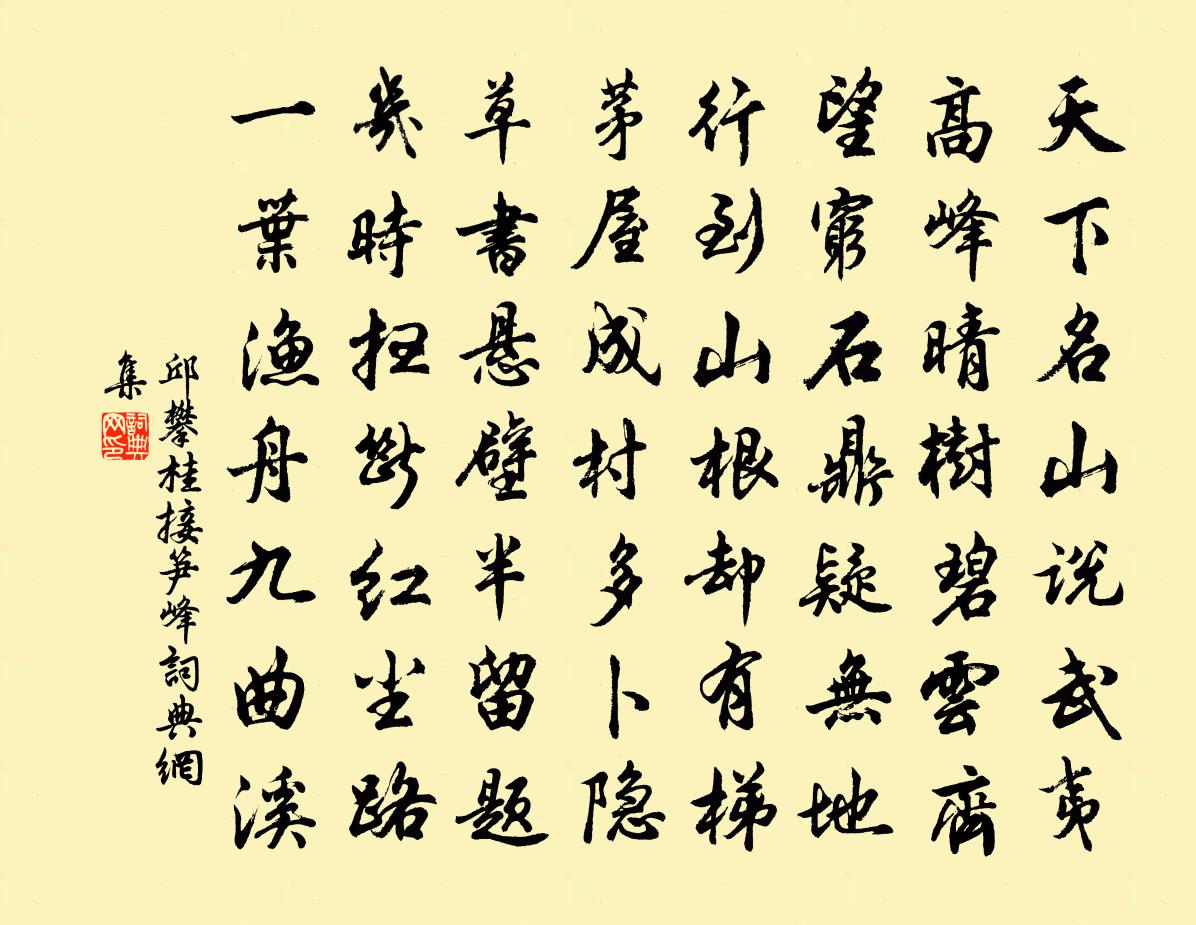 天下名山说武夷
高峰晴樹碧雲齊
望窮石鼎疑無地
行到山根却有梯
茅屋成村多卜隐
草書悬壁半留题
幾時扫断红尘路
一葉渔舟九曲溪
邱攀桂接笋峰詞典網
集
詞典
网印